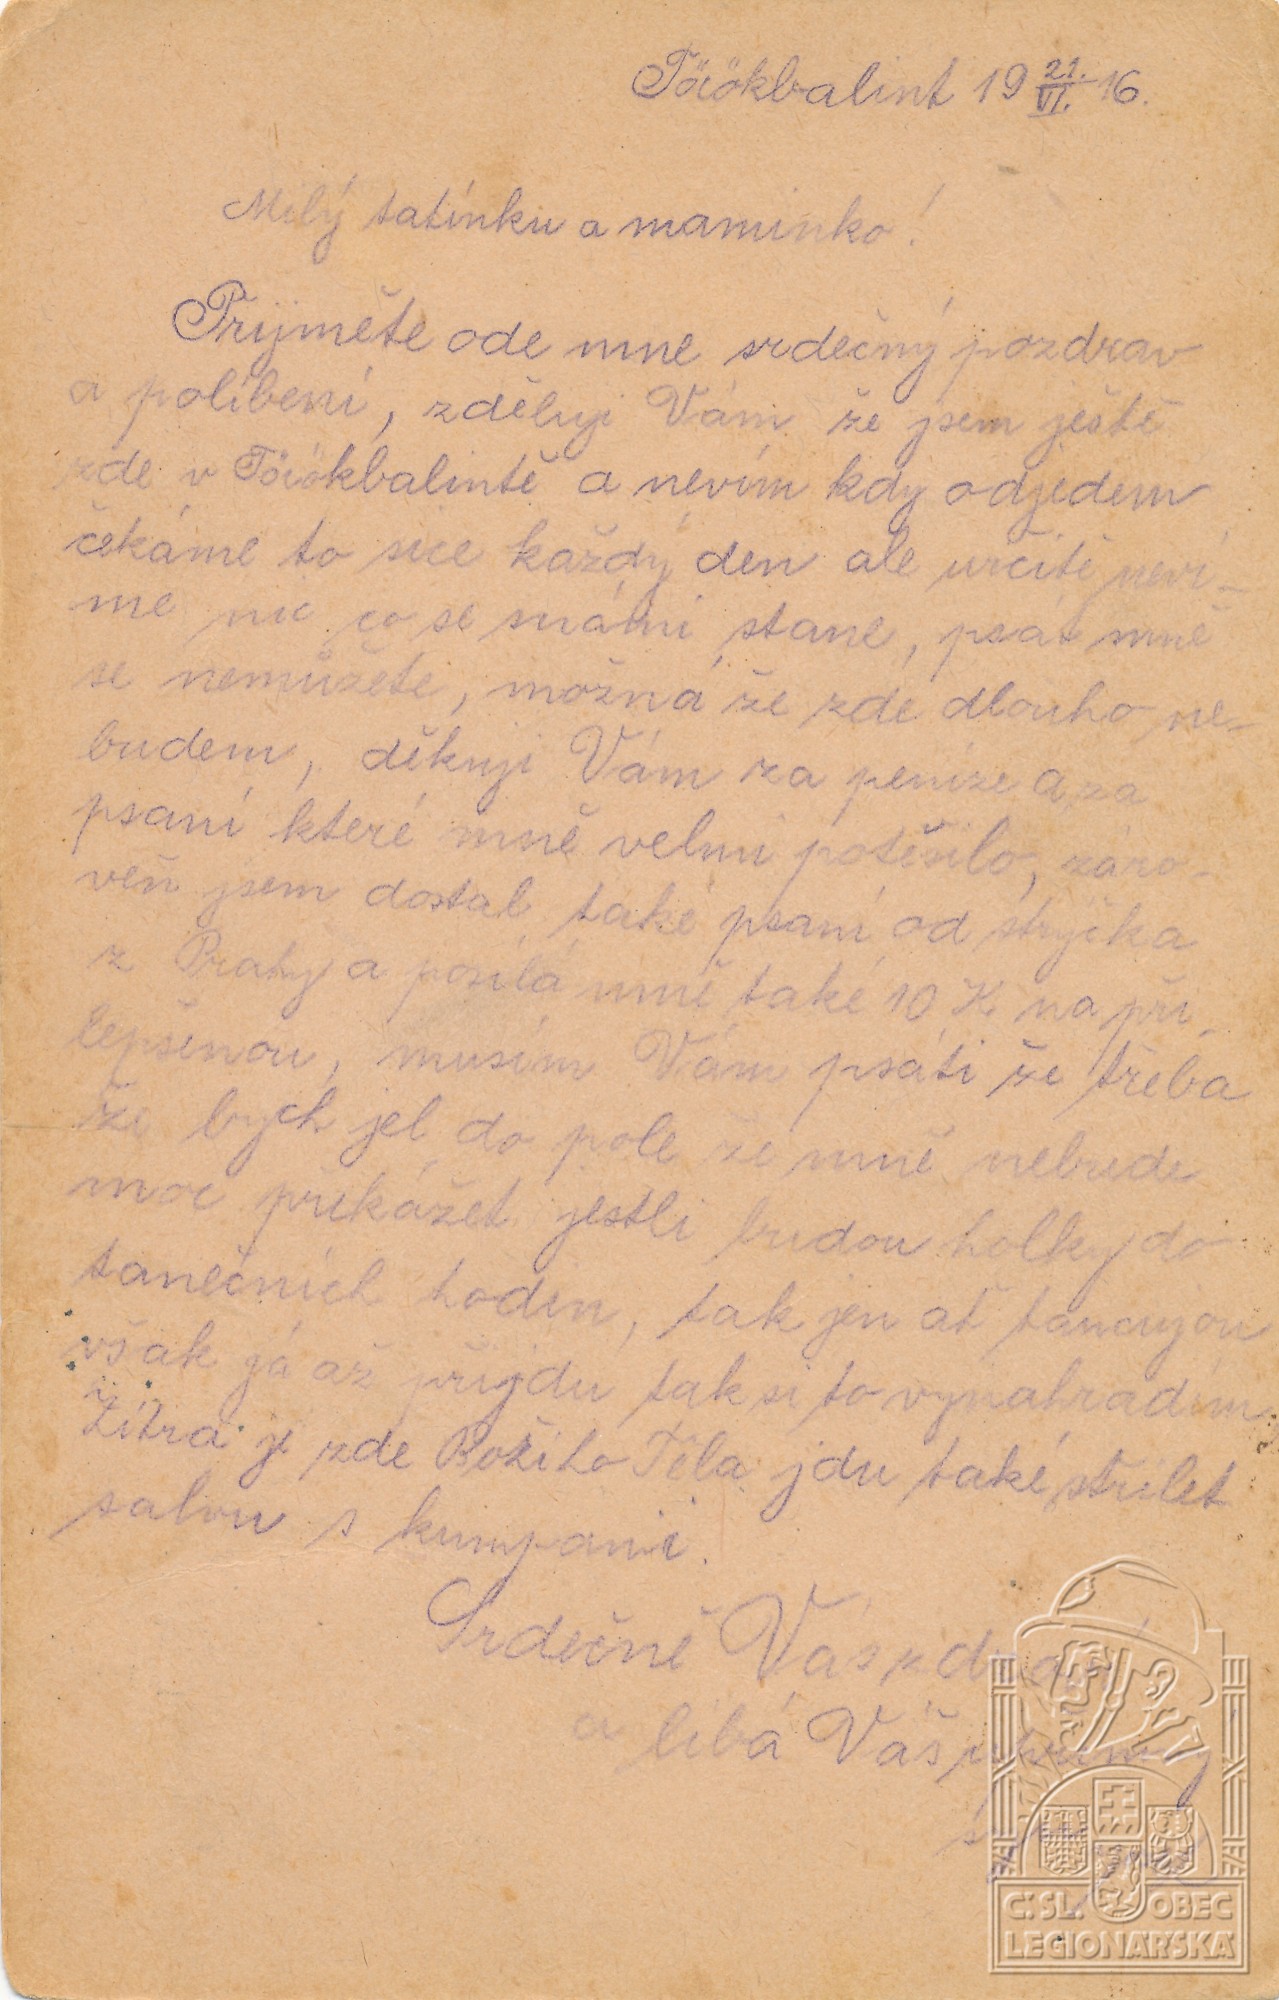 Törökbalint 19 21./VI. 16.
Milý tatínku a maminko!
Přijměte ode mne srdečný pozdrav
a políbení, zděluji Vám že jsem ještě
zde v Törökbalintě a nevím kdy odjedem
čekáme to sice každý den ale určitě neví-
me nic co se snámi stane, psát mně
se nemůžete, možná že zde dlouho ne-
budem, děkuji Vám za peníze a za
psaní které mně velmi potěšilo, záro-
veň jsem dostal také psaní od strýčka
z Prahy a posílá mně také 10 K na při-
lepšenou, musím Vám psáti že třeba
že bych jel do pole že mně nebude
moc překážet jestli budou holky do
tanečních hodin, tak jen ať tancujou
však já až přijdu tak si to vynahradím
Zítra je zde Božího Těla jdu také střílet
salvu s kumpanií.
Srdečně Vás zdraví
a líbá Váš upřímný
Č:SL. OBEC
LEGIONÁŘSKÁ